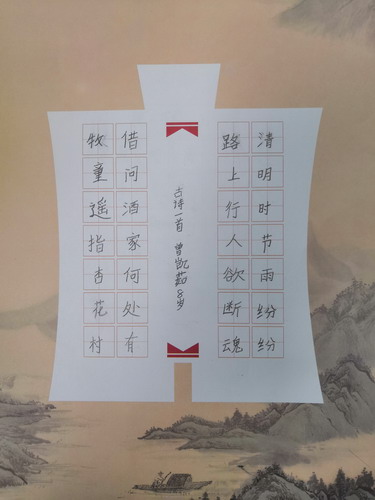 清明时节雨纷纷
路上行人欲断魂
古诗一首 曾凯茹8岁
借问酒家何处有
牧童遥指杏花村